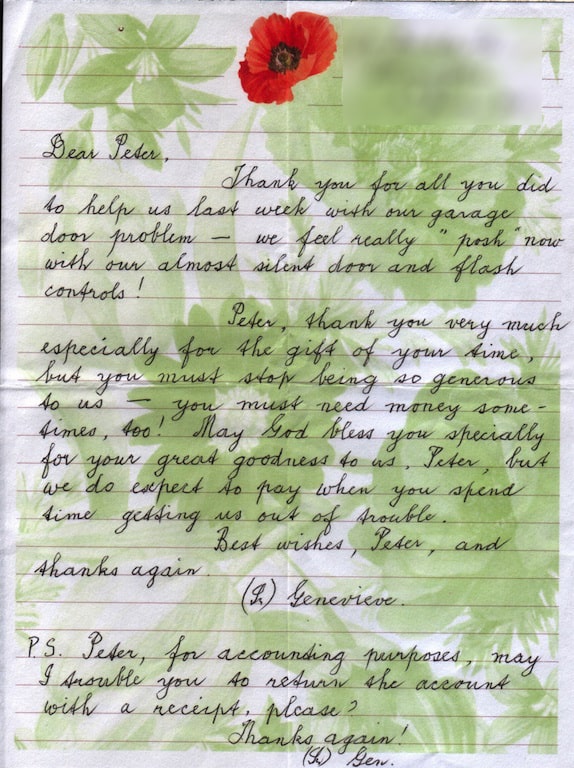 Dear Peter,
Thank you for all you did
to help us last week with our garage
door problem — we feel really "posh" now
with our almost silent door and flash
controls!
Peter, thank you very much
especially for the gift of your time,
but you must stop being so generous
to us — you must need money some-
times, too! May God bless you specially
for your great goodness to us, Peter, but
we do expect to pay when you spend
time getting us out of trouble.
Best wishes, Peter, and
thanks again.
(Sr) Genevieve.
P.S. Peter, for accounting purposes, may
I trouble you to return the account
with a receipt, please?
Thanks again!
(Sr) Gen.